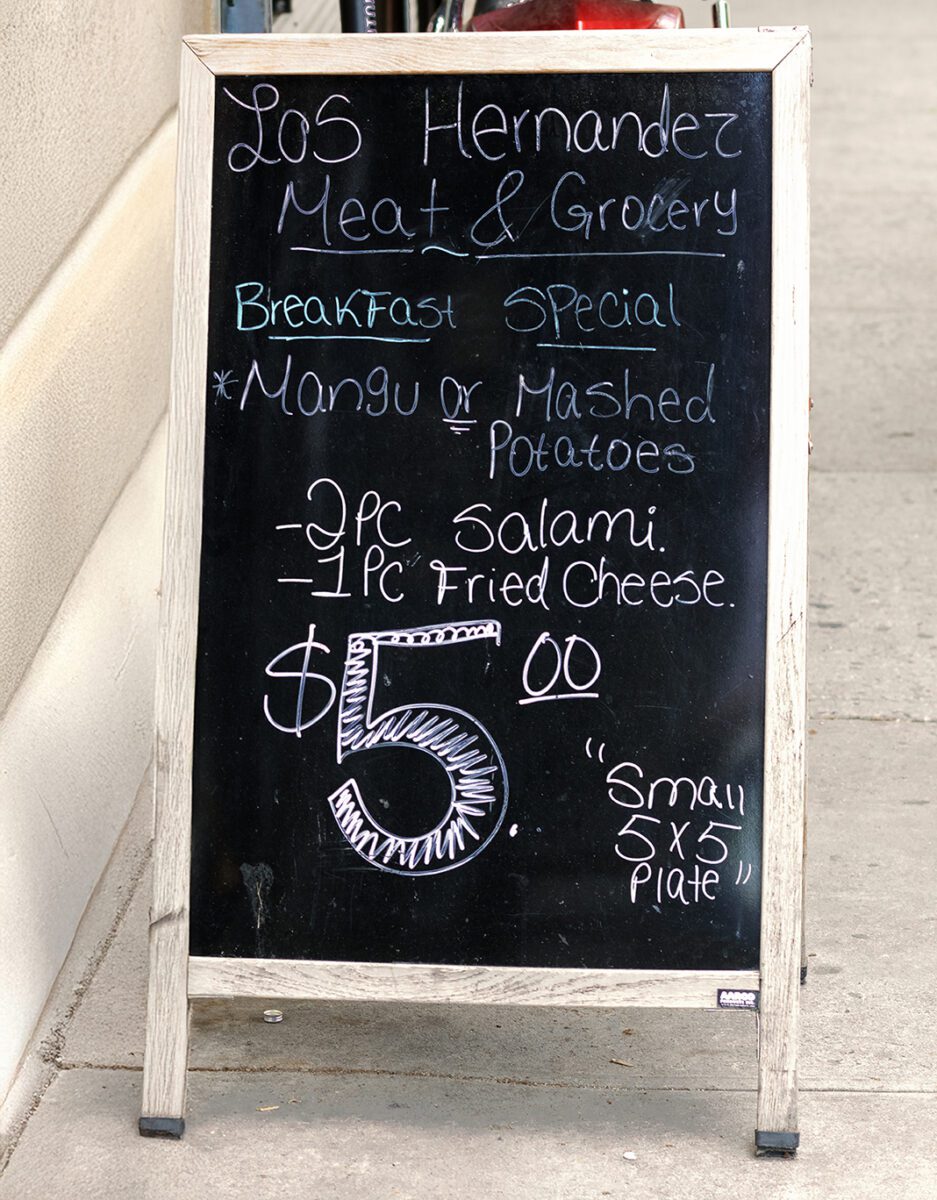 Los Hernandez
Meat & Grocery
Breakfast Special
*Mangu or Mashed
Potatoes
-2PC Salami.
-1PC Fried Cheese.
$5.00
"Small
5x5
Plate"
AARCO